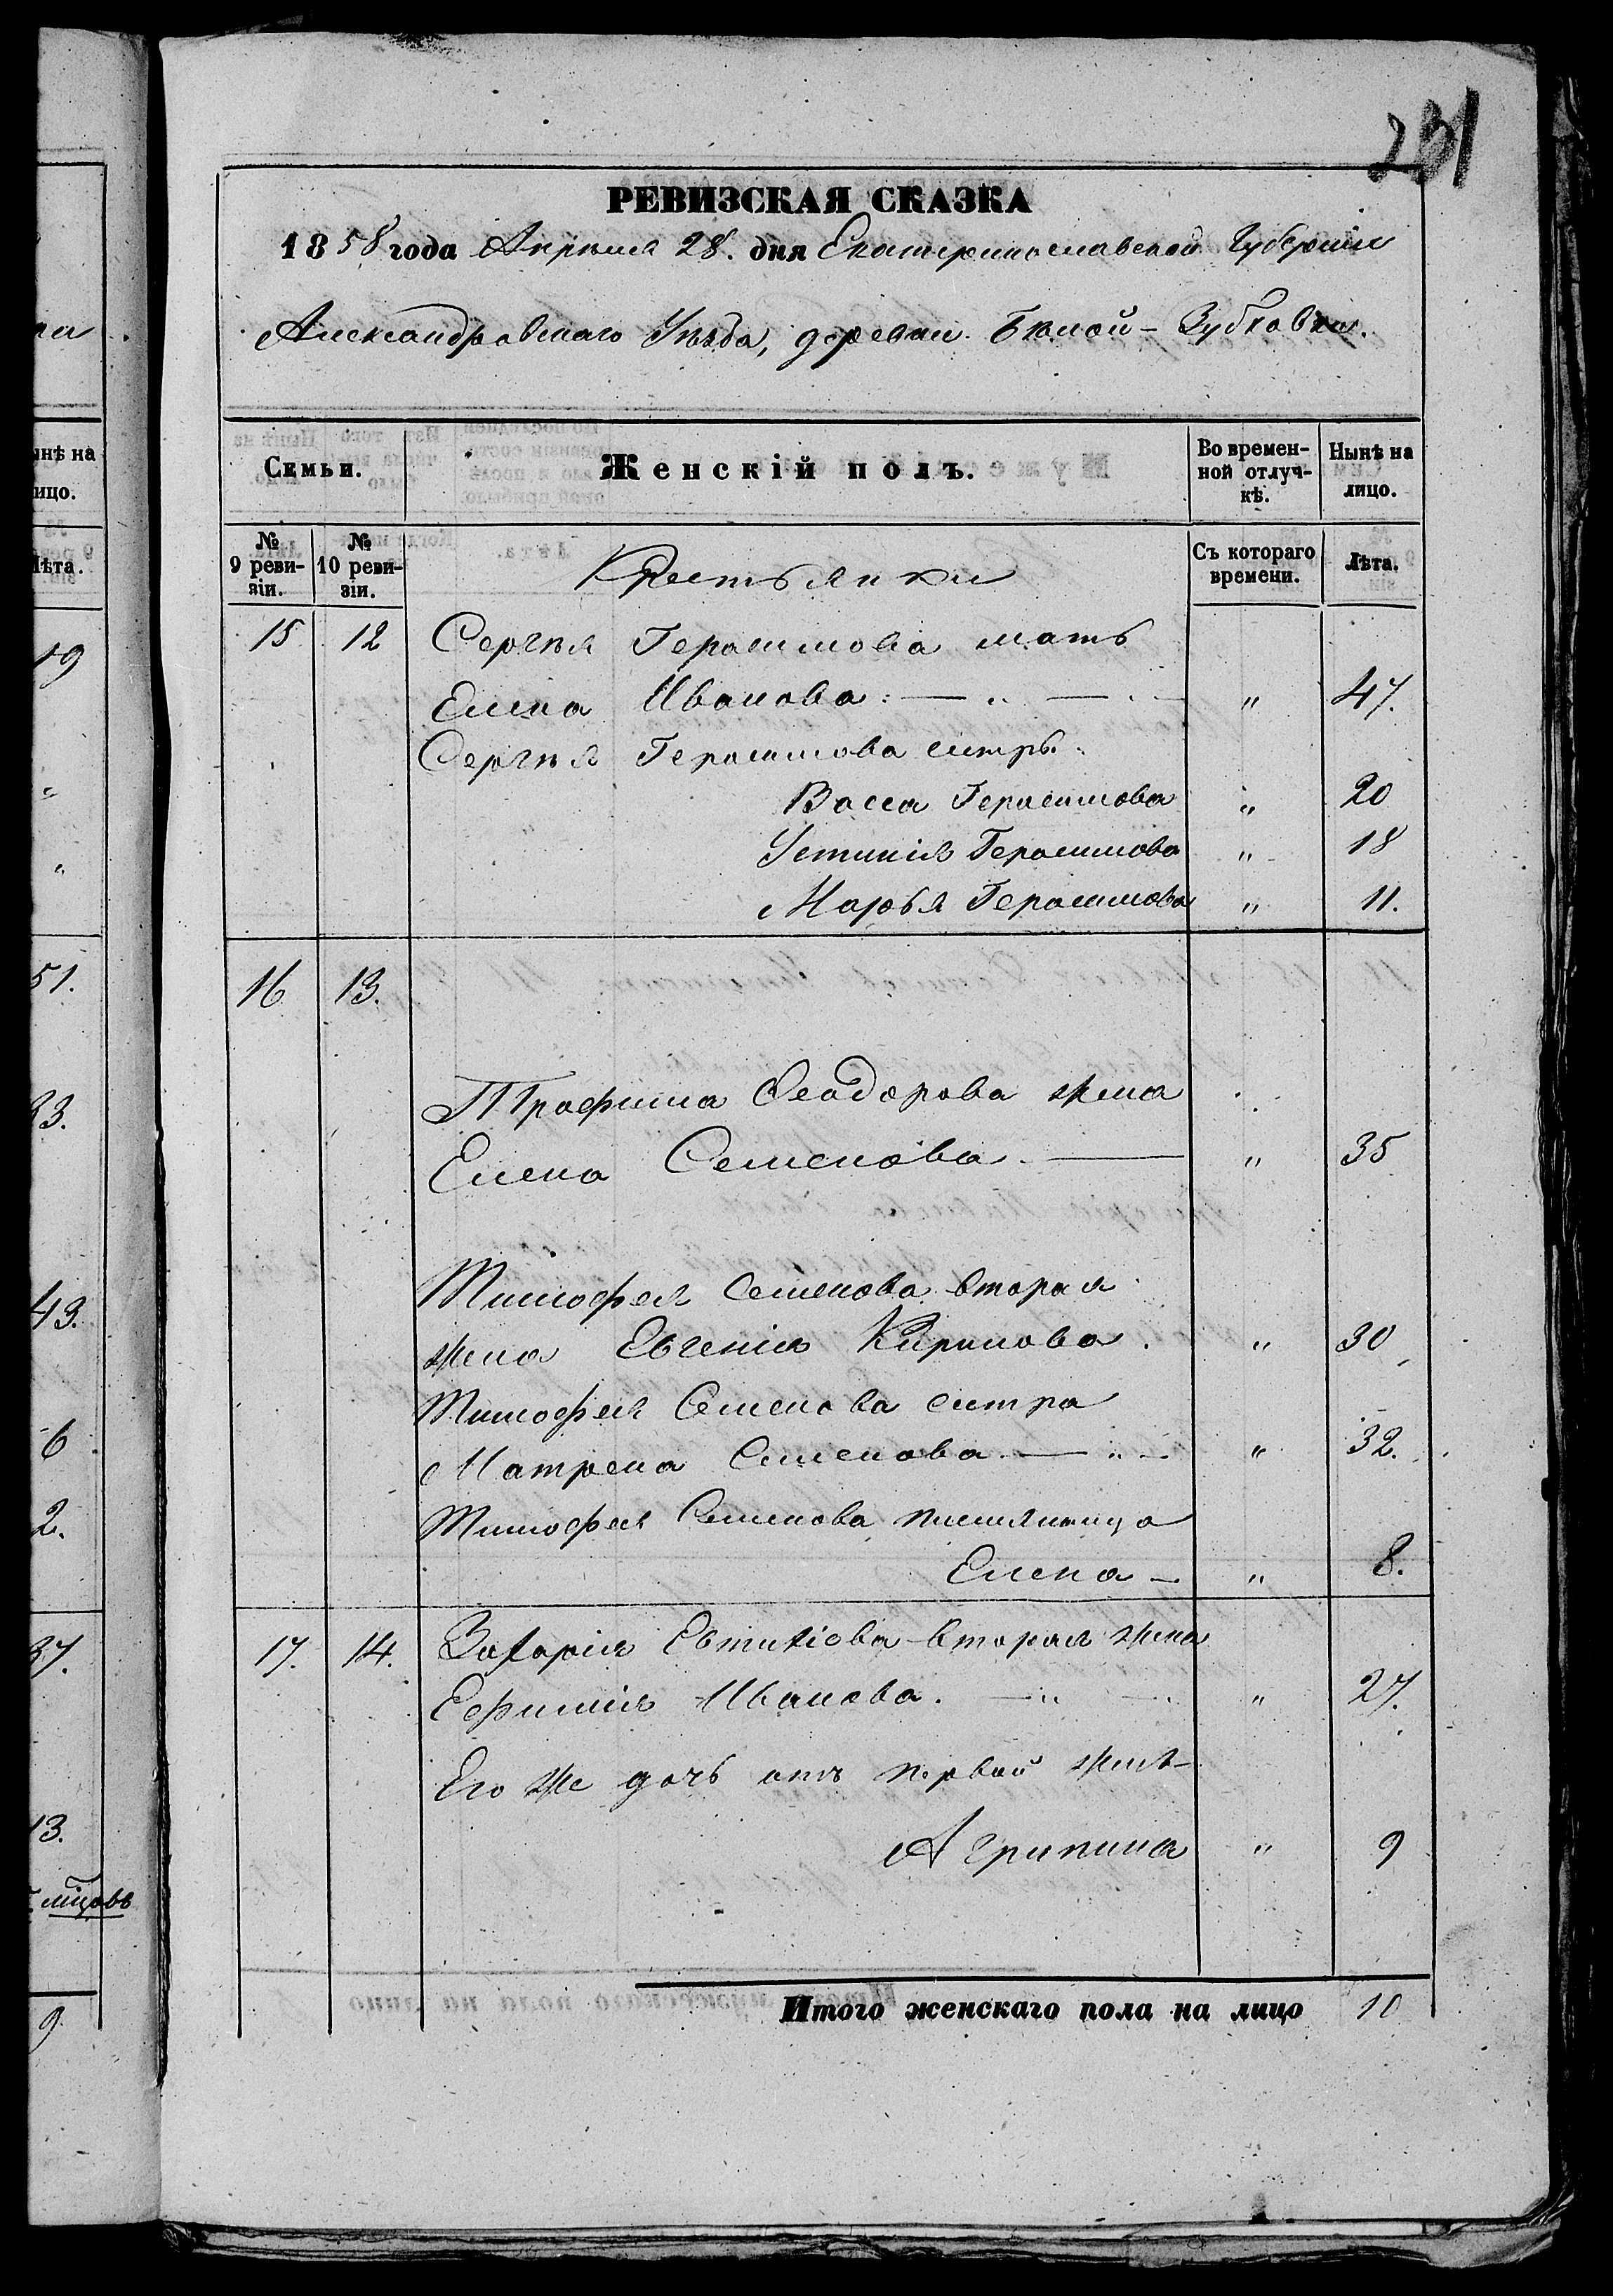 231
РЕВИЗСКАЯ СКАЗКА
1858 года Апрѣля 28. дня Екатеринославской Губерніи
Александровскаго Уѣзда, деревни Бѣлой-Зубковки.
Семьи.
Женскій полъ.
Во времен-
ной отлуч-
кѣ.
Нынѣ на
лицо.
№
9 реви-
зіи.
№
10 реви-
зіи.
Крестьянки
Съ котораго
времени.
Лѣта.
15 12 Сергѣя Герасимова мать
Елена Иванова: — „ — „ 47.
Сергѣя Герасимова сестры:
Васса Герасимова „ 20
Устинія Герасимова „ 18
Марья Герасимова „ 11.
16 13.
Трофима Феодорова жена
Елена Семенова. — „ 35
Тимофея Семенова вторая
жена Евгенія Кирилова. „ 30
Тимофея Семенова сестра
Матрена Семенова — „ — „ 32.
Тимофея Семенова племянница
Елена — „ 8.
17. 14. Захарія Евтихіева вторая жена
Ефимія Иванова. — „ — „ 27.
Его же дочь отъ первой жены
Агрипина „ 9
Итого женскаго пола на лицо 10
ынѣ на
ицо.
Лѣта.
19
„
„
51.
33.
43.
6
2.
37.
13.
9